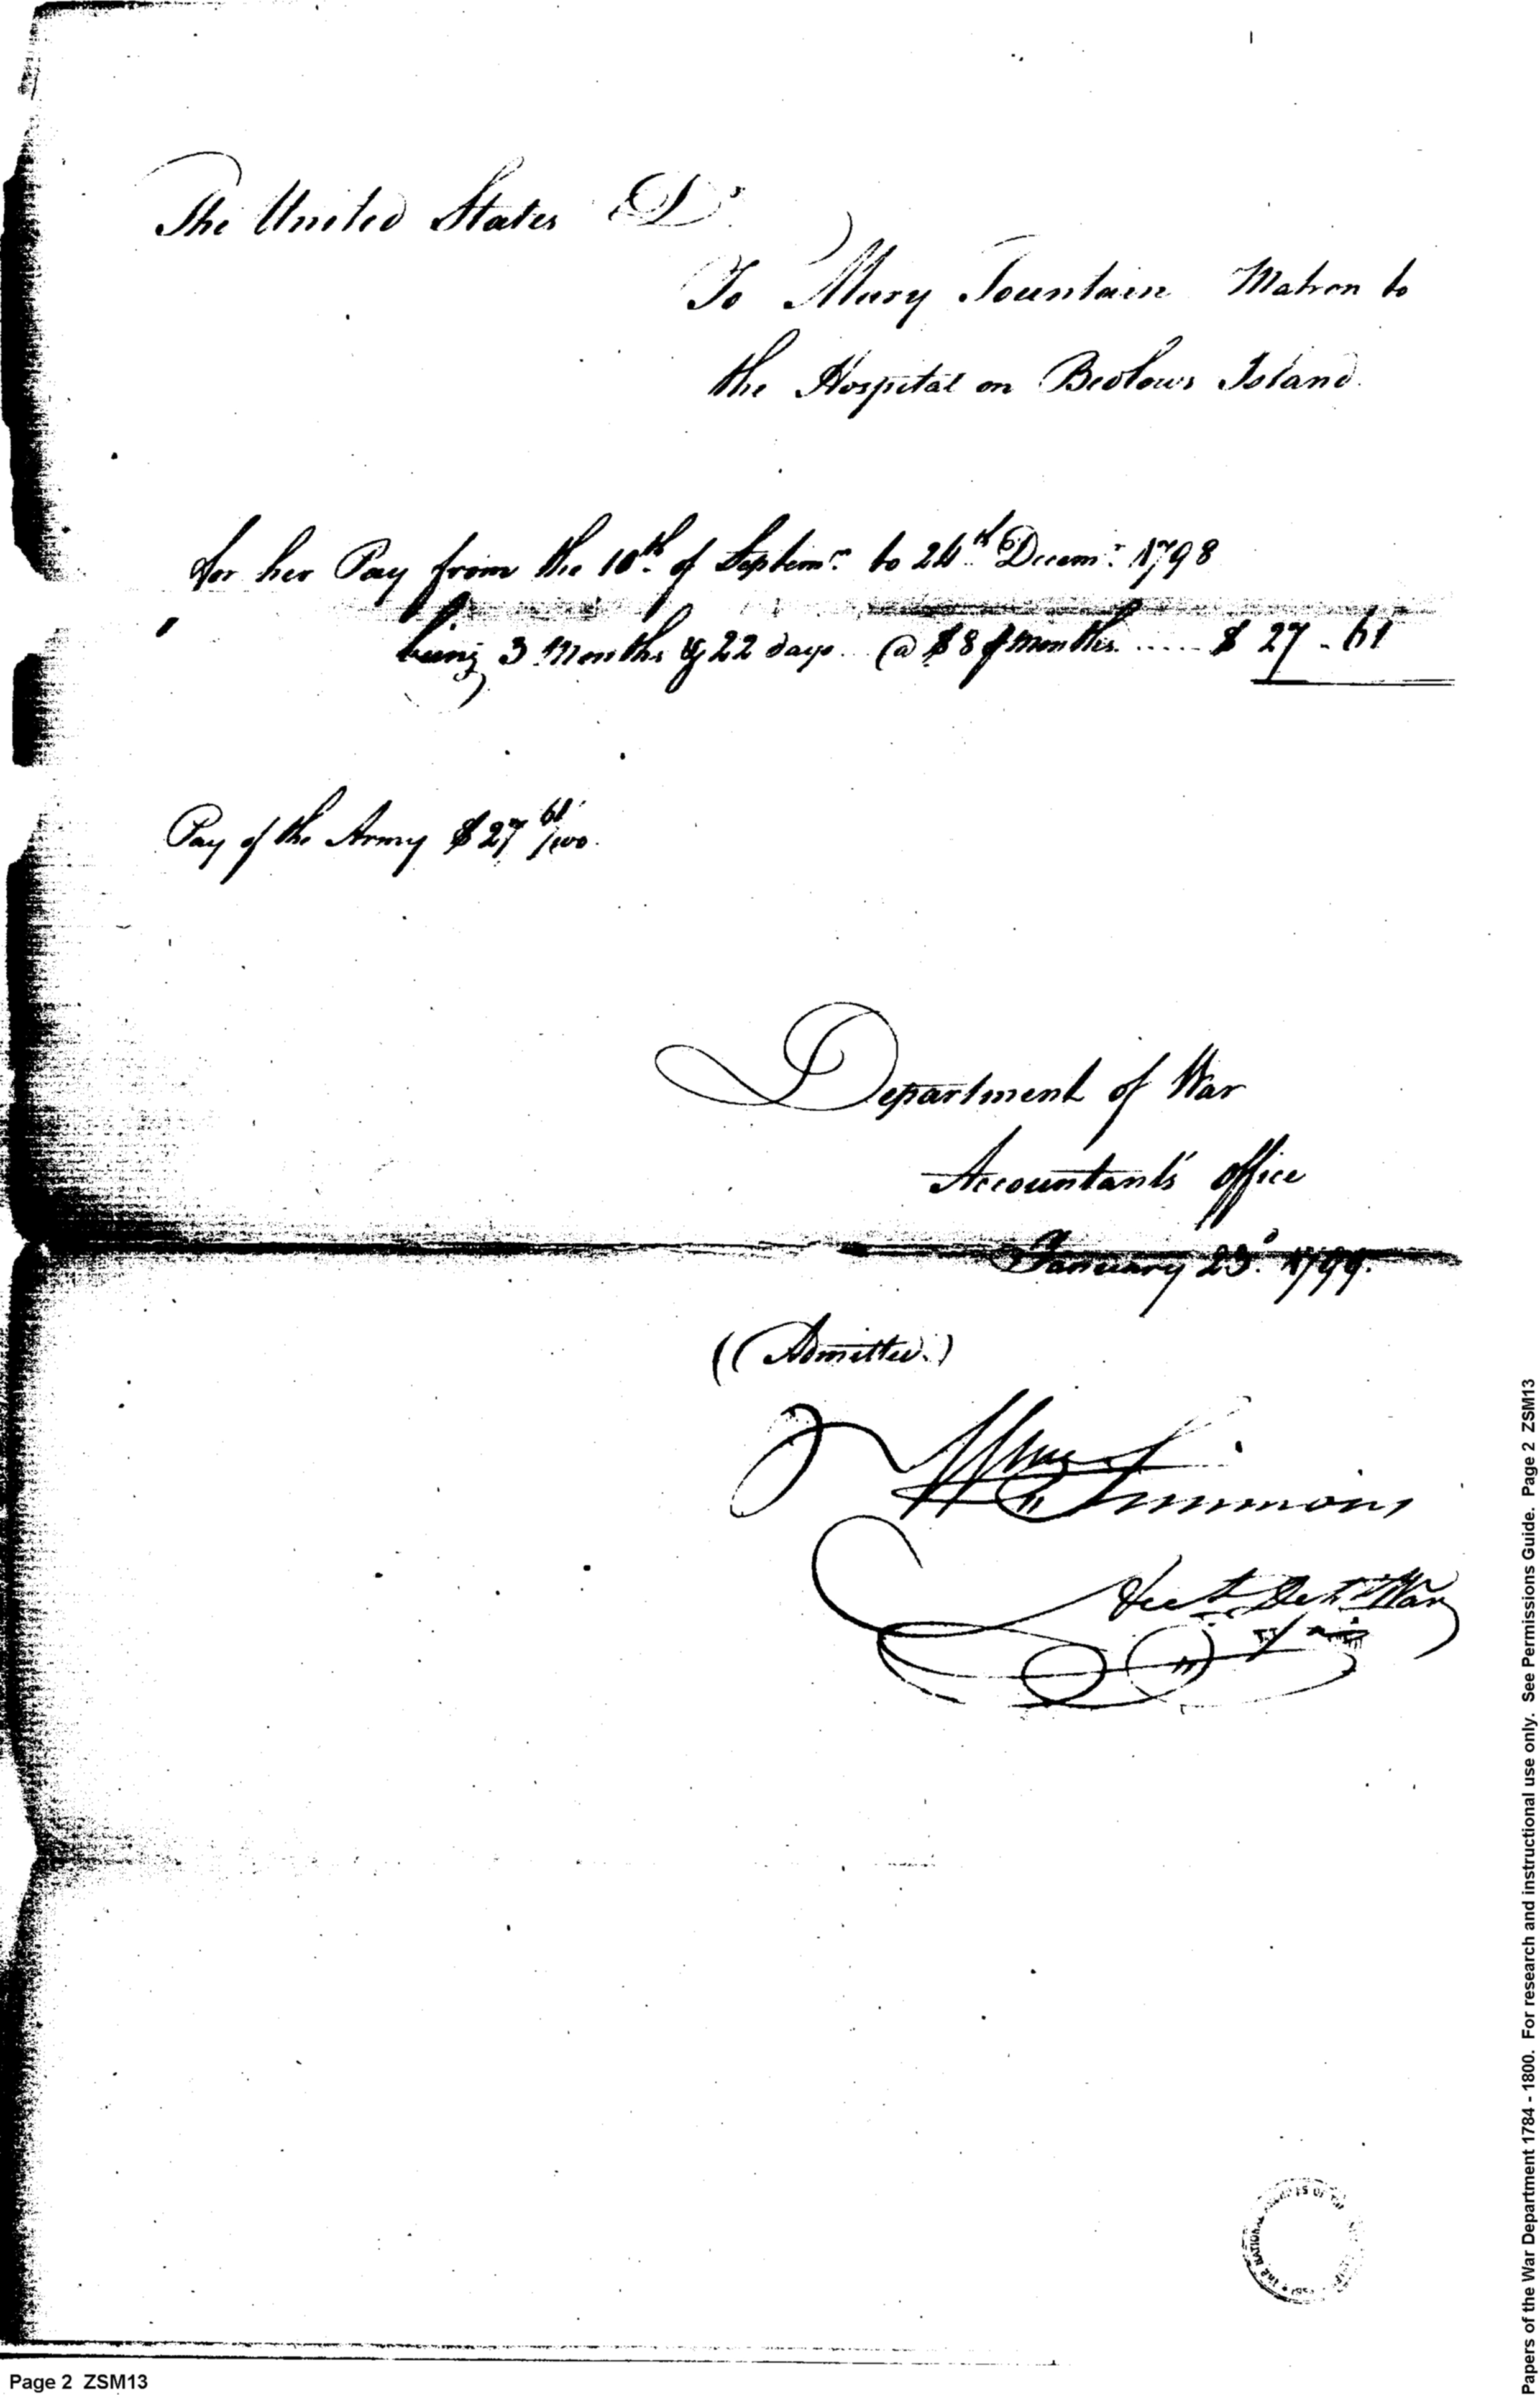 The United States Dr.
To Mary Fountain Matron to
the Hospital on Bedlows Island
for her Pay from the 10th. of Septemr. to 24th. Decemr. 1798
being 3 Months & 22 days @ $8 ⅌ Months ..... $ 27 - 61
Pay of the Army $27 61/100.
Department of War
Accountants office
January 23d. 1799.
(Admitted.)
Wm Simmons
Acct. Dept. War
THE NATIONAL
Page 2 ZSM13
Papers of the War Department 1784 - 1800. For research and instructional use only. See Permissions Guide. Page 2 ZSM13